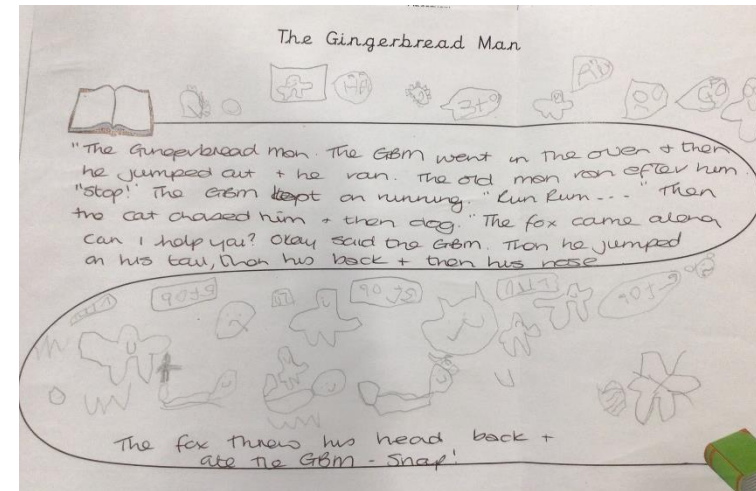 The Gingerbread Man
HA
"The Gingerbread man. The GBM went in the oven + then
he jumped out + he ran. The old man ran after him.
"Stop!" The GBM kept on running. "Run Run..." Then
the cat chased him + then dog. "The fox came along
can I help you? Okay said the GBM. Then he jumped
on his tail, then his back + then his nose
The fox threw his head back +
ate the GBM - Snap!